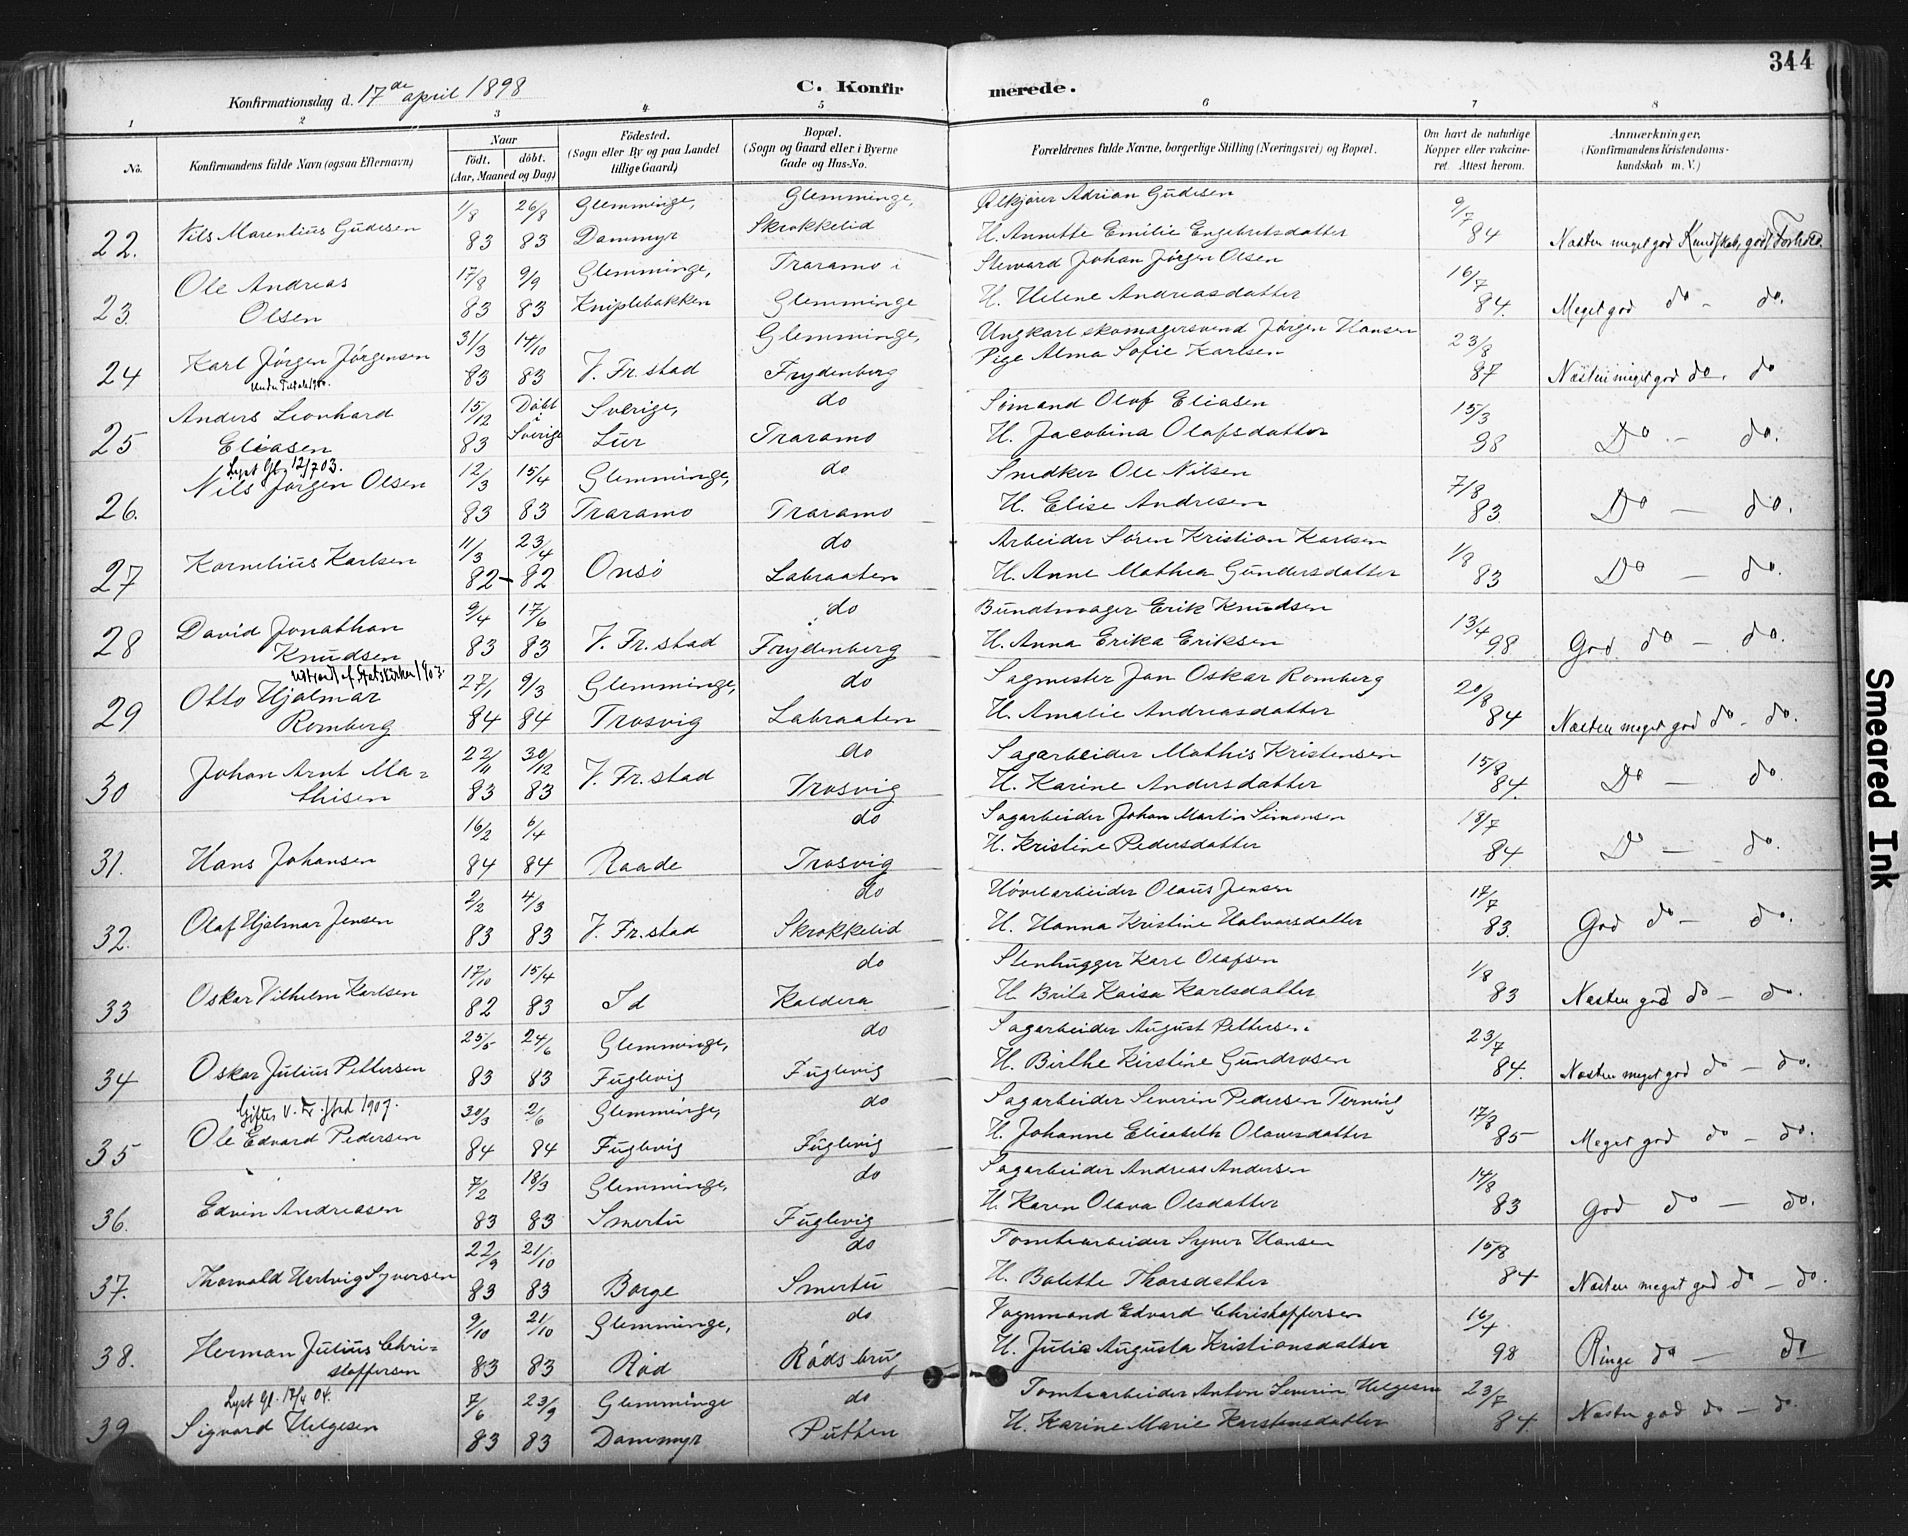 344
Konfirmationsdag d. 17de april 1898 C. Konfirmerede.
1 2 3 4 5 6 7 8
No. Konfirmandens fulde Navn (ogsaa Efternavn) Naar Födt. döbt. (Aar, Maaned og Dag) Födested. (Sogn eller By og paa Landet tillige Gaard) Bopæl. (Sogn og Gaard eller i Byerne Gade og Hus-No. Forældrenes fulde Navne, borgerlige Stilling (Næringsvei) og Bopæl. Om havt de naturlige Kopper eller vakcineret. Attest herom. Anmærkninger, (Konfirmandens Kristendomskundskab m. V.)
22. Nils Marentius Gudesen 1/8 83 26/8 83 Glemminge, Dammyr Glemminge, Skrokkelid Ølkjører Adrian Gudesen H. Annette Emilie Engebretsdatter 9/7 84 Næsten meget god Kundskab, godt Forhold
23. Ole Andreas Olsen 17/8 83 9/9 83 Glemminge, Kniplebakken Traramo i Glemminge Steward Johan Jörgen Olsen H. Helene Andreasdatter 16/7 84. Meget god do - do.
24 Karl Jörgen Jörgensen 31/3 83 14/10 83 V. Fr.stad Glemminge, Frydenberg Ungkarl skomagersvend Jörgen Hansen Pige Alma Sofie Karlsen 23/8 87 Næsten meget god do. do
25 Anders Leonhard Eliasen 15/12 83 Döbt i Sverige Sverige, Lur do Traramo Sömand Olof Eliasen H. Jacobina Olafsdatter 15/3 98 Do - do.
Lyst Gl. 12/7 03.
26. Nils Jörgen Olsen 12/3 83 15/4 83 Glemminge, Traramo do Traramo Snedker Ole Nilsen H. Elise Andresen 7/8 83 Do - do.
27 Kornelius Karlsen 11/3 82 - 23/4 82 Onsö do Labraaten Arbeider Sören Kristian Karlsen H. Anne Mathea Gundersdatter 1/8 83 Do - do.
28 David Jonathan Knudsen 9/4 83 17/6 83 V. Fr.stad do Frydenberg Bundtmager Erik Knudsen H. Anna Erika Eriksen 13/4 98 God do - do.
29 Otto Hjalmar Romberg 27/1 84 9/3 84 Glemminge, Trosvig do Labraaten Sagmester Jan Oskar Romberg H. Amalie Andreasdatter 20/8 84 Næsten meget god do - do.
30 Johan Arnt Mathisen 22/11 83 30/12 83 V. Fr.stad do Trosvig Sagarbeider Mathis Kristensen H. Karine Andersdatter 15/8 84. Do - do
31. Hans Johansen 16/2 84 6/4 84 Raade do Trosvig Sagarbeider Johan Martin Simensen H. Kristine Pedersdatter 18/7 84 Do - do.
32. Olaf Hjalmar Jensen 2/2 83 4/3 83 V. Fr.stad do Skrokkelid Hövelarbeider Olaus Jensen H. Hanna Kristine Halvorsdatter 17/7 83. God do - do.
33 Oskar Vilhelm Karlsen 17/10 82 15/4 83 Id do Kaldera Stenhugger Karl Olafsen H. Brita Kaisa Karlsdatter 1/8 83 Næsten god do - do.
34 Oskar Julius Pettersen 25/5 83 24/6 83 Glemminge, Fuglevig do Fuglevig Sagarbeider August Pettersen H. Birthe Kirstine Gundrosen 23/7 84. Næsten meget god do - do.
Gift V. Fr.stad 1907.
35 Ole Edvard Pedersen 30/3 84 2/6 84 Glemminge, Fuglevig do Fuglevig Sagarbeider Severin Pedersen Terning H. Johanne Elisabeth Olavesdatter 17/8 85 Meget god do - do.
36. Edvin Andreasen 7/2 83 18/3 83 Glemminge, Smertu do Fuglevig Sagarbeider Andreas Andersen H. Karen Olava Olsdatter 14/8 83 God do - do.
37. Thorvald Hartvig Syversen 22/9 83 21/10 83 Borge do Smertu Tomtearbeider Syver Hansen H. Bolette Thorsdatter 15/8 84 Næsten meget god do - do.
38. Herman Julius Christoffersen 9/10 83 21/10 83 Glemminge, Röd do Röds brug Vognmand Edvard Christoffersen H. Julie Augusta Kristiansdatter 16/4 98 Ringe do - do
39. Sigvard Helgesen 7/6 83 23/9 83 Glemminge Dammyr do Putten Tomtearbeider Anton Severin Helgesen H. Karine Marie Karstensdatter 23/7 84. Næsten god do - do.
Smeared Ink